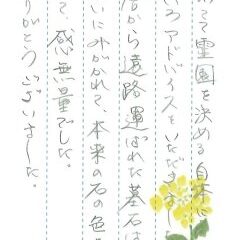 めて霊園を決める自体に
いろアドバイスをいただきます
店から遠路運ばれた墓石は
いに外がかれて、本来の石の色
て、感無量でした。
りがとうございました。